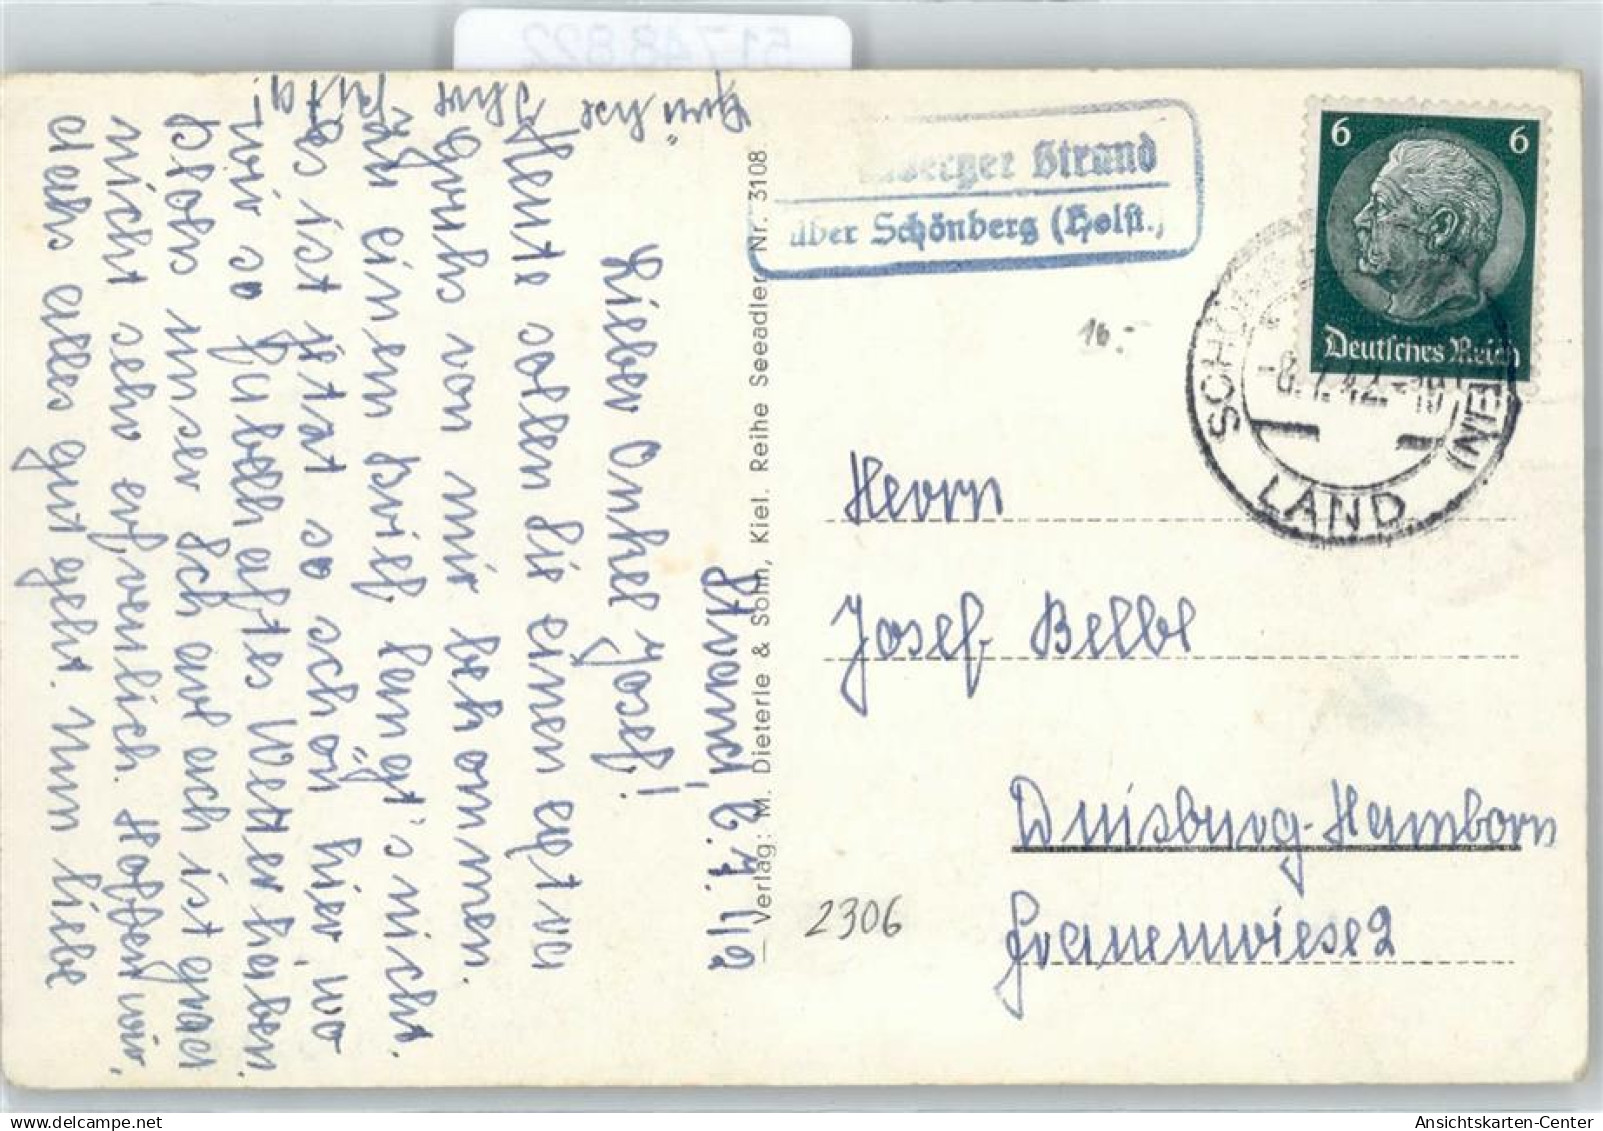 51748822
Strand, 6.7.42
Lieber Onkel Josef!
Heute sollen Sie einen extra
Gruß von mir bekommen.
Zu einem Brief langt's nicht.
Es ist jetzt so schön hier wo
wir so fabelhaftes Wetter haben.
Bloß unser Ich art auch ist grad
nicht sehr erfreulich. Hoffen wir,
daß alles gut geht. Nun liebe
Grüße Ihre Juta!
Verlag: M. Dieterle & Sohn, Kiel. Reihe Seeadler Nr. 3108
berger Strand
über Schönberg (Holst.)
6 6
Deutsches Reich
LAND
16.-
Herrn
Josef Belbe
Duisburg-Hamborn
Frauenwiese 2
2306
delcampe.net
Ansichtskarten-Center